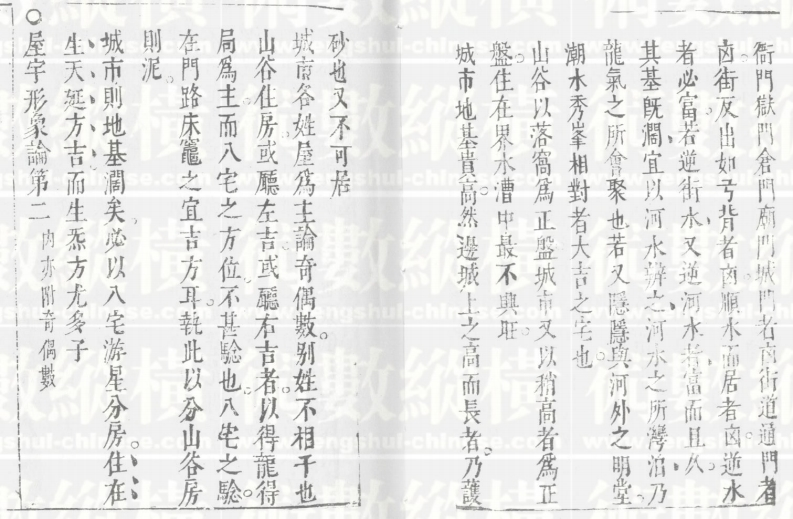 衙門獄門倉門廟門城門者凶街道通門者
凶街反出如弓背者凶順水而居者凶逆水
者必富若逆街水又逆河水者富而且久
其基既濶宜以河水辨之河水之所灣泊乃
龍氣之所會聚也若又隱隱與河外之明堂
潮水秀峯相對者大吉之宅也
山谷以落窩爲正盤城市又以稍高者爲正
盤住在界水漕中最不興旺
城市地基貴高然邊城上之高而長者乃護
砂也又不可居
城市各姓屋爲主論奇偶數别姓不相干也
山谷住房或廳左吉或廳右吉者以得龍得
局爲主而八宅之方位不甚騐也八宅之騐
在門路床竈之宜吉方耳執此以分山谷房
則泥
城市則地基濶矣必以八宅游星分房住在
生天延方吉而生炁方尤多子
○屋宇形象論第二 内亦附奇偶數